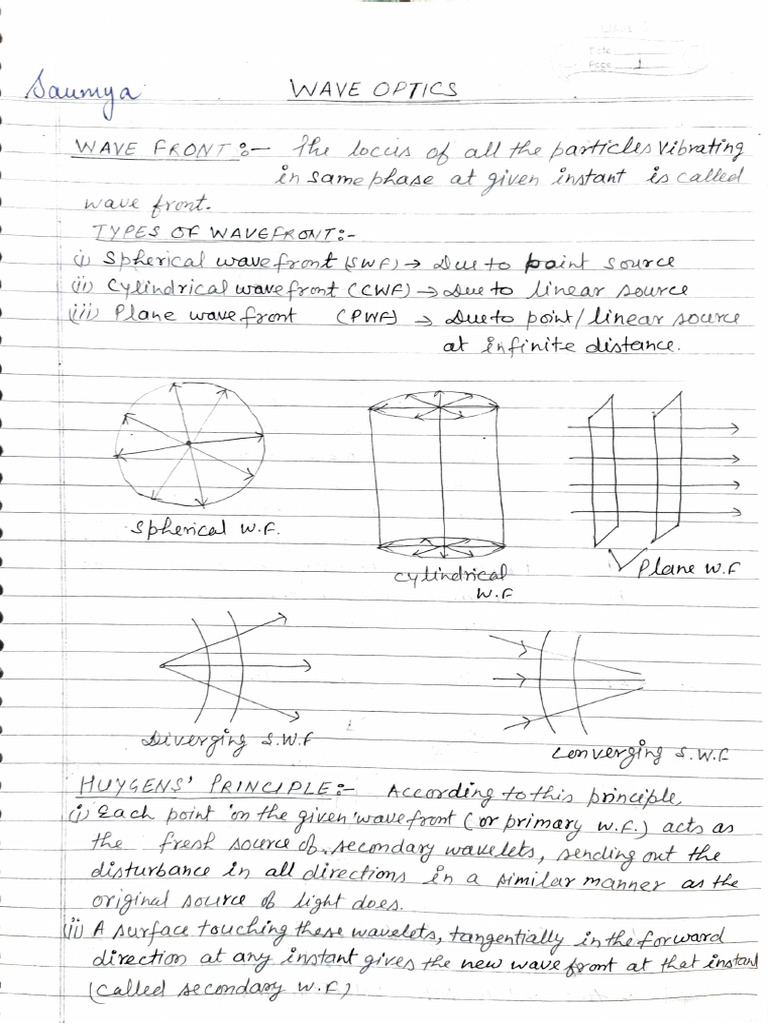 Date
Page 1
Saumya
WAVE OPTICS
WAVE FRONT:- The locus of all the particles vibrating
in same phase at given instant is called
wave front.
TYPES OF WAVEFRONT:-
(i) Spherical wavefront (SWF) → Due to point source
(ii) Cylindrical wavefront (CWF) → Due to linear source
(iii) Plane wavefront (PWF) → Due to point/linear source
at infinite distance.
Spherical W.F.
Cylindrical
W.F
Plane W.F
Diverging S.W.F
Converging S.W.F
HUYGENS' PRINCIPLE:- According to this principle,
(i) Each point on the given wavefront (or primary w.f.) acts as
the fresh source of secondary wavelets, sending out the
disturbance in all directions in a similar manner as the
original source of light does.
(ii) A surface touching these wavelets, tangentially in the forward
direction at any instant gives the new wavefront at that instant
(called secondary W.F)